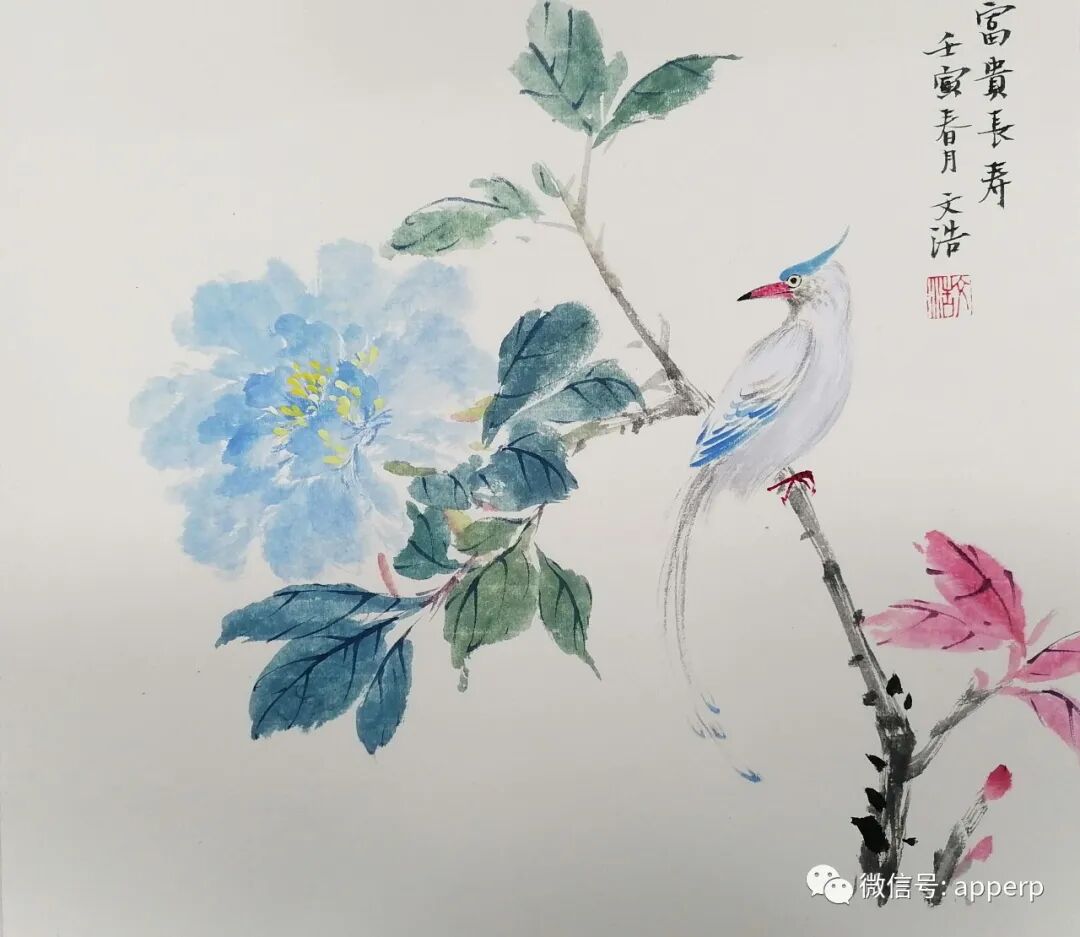 富貴長寿
壬寅春月 文浩
文浩
微信号: apperp